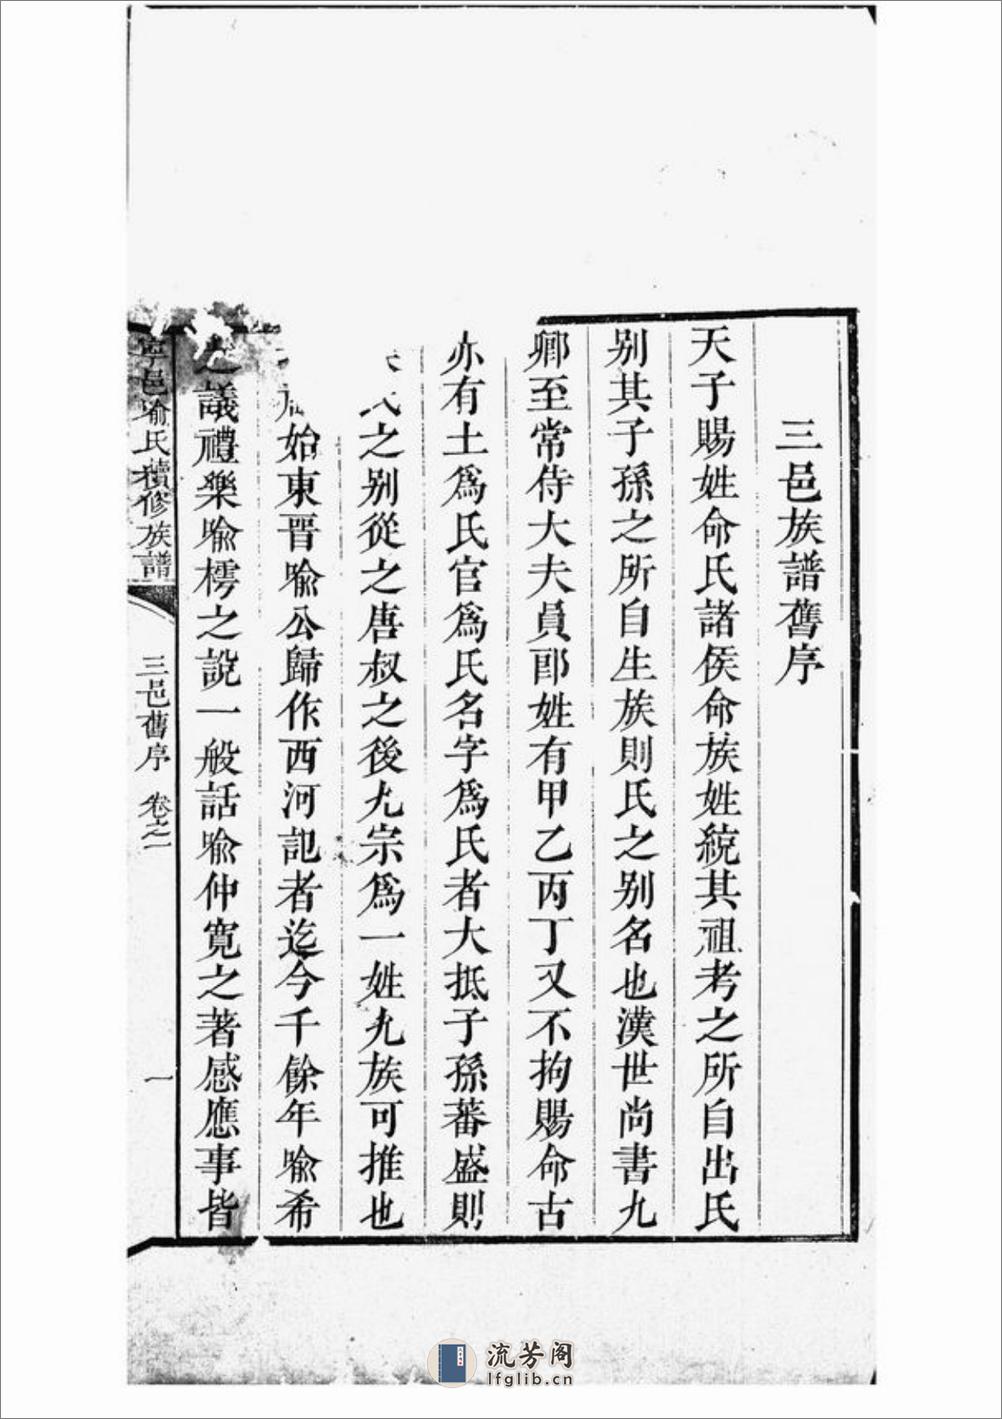 三邑族譜舊序
天子賜姓命氏諸侯命族姓統其祖考之所自出氏
别其子孫之所自生族則氏之别名也漢世尚書九
卿至常侍大夫員郎姓有甲乙丙丁又不拘賜命古
亦有土爲氏官爲氏名字爲氏者大抵子孫蕃盛則
之别從之唐叔之後九宗爲一姓九族可推也
始東晋喻公歸作西河記者迄今千餘年喻希
之議禮樂喻樗之説一般話喻仲寛之著感應事皆
寧邑喻氏續修族譜
三邑舊序 卷之一
一
流芳阁
lfglib.cn